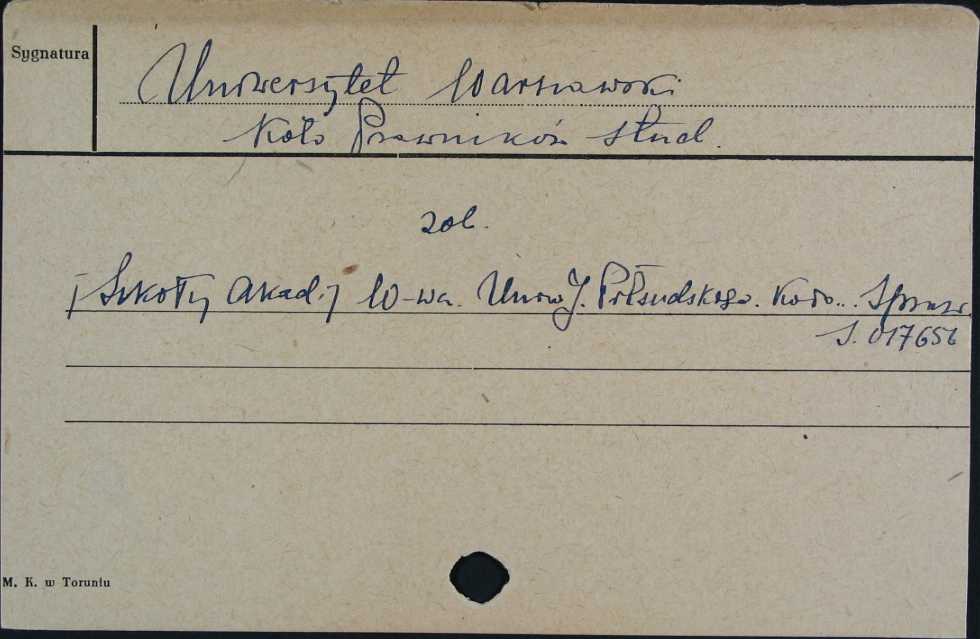 Sygnatura
Uniwersytet Warszawski
Koło Prawników Stud.
zob.
[Szkoły Akad.] W-wa. Uniw J. Piłsudskiego. Koło.. Spraw.
S. 017656
M. K. w Toruniu